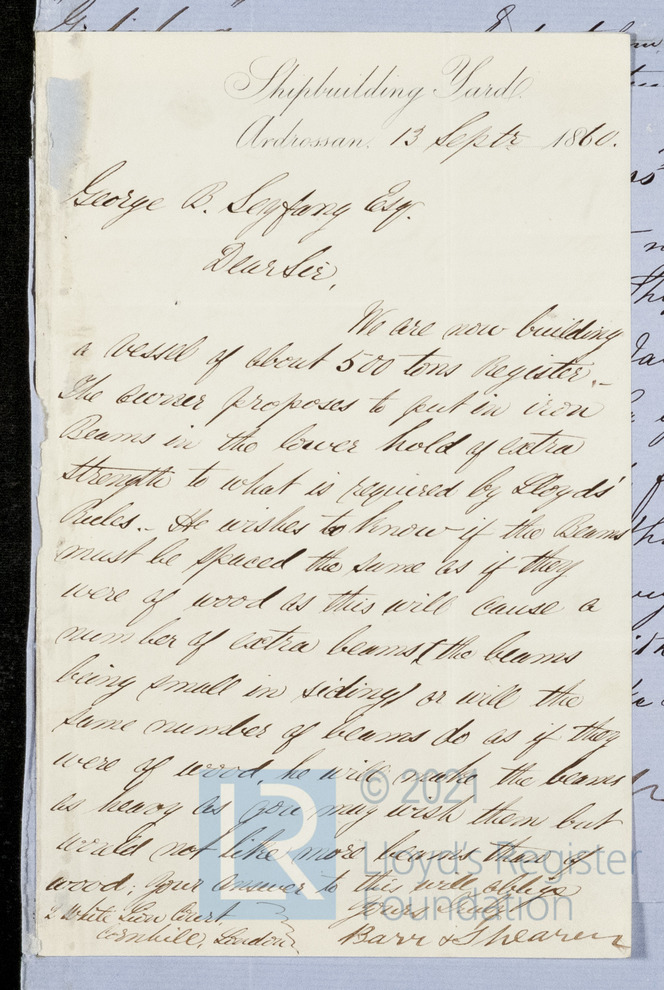 Shipbuilding Yard.
Ardrossan. 13 Septr 1860.
George B. Seyfang Esq.
Dear Sir,
We are now building
a vessel of about 500 tons Register.-
The owner proposes to put in iron
Beams in the lower hold of extra
strength to what is required by Lloyds'
Rules.- He wishes to know if the Beams
must be spaced the same as if they
were of wood as this will cause a
number of extra beams (the beams
being small in siding) or will the
same number of beams do as if they
were of wood, he will make the beams
as heavy as you may wish them but
would not like more beams than of
wood; your answer to this will oblige
Yours Truly
Barr & Shearer
2 White Lion Court
Cornhill, London
© 2021
LR
Lloyd's Register
Foundation